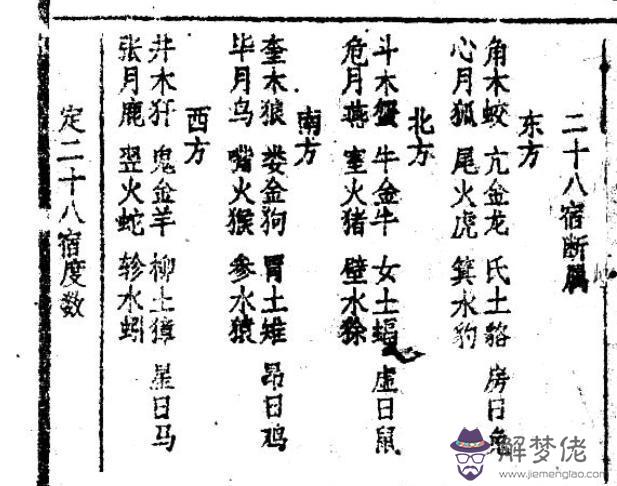 二十八宿断属
东方
角木蛟 亢金龙 氏土貉 房日兔
心月狐 尾火虎 箕水豹
北方
斗木 牛金牛 女土蝠 虚日鼠
危月 室火猪 壁水
南方
奎木狼 娄金狗 胃土雉 昂日鸡
毕月乌 嘴火猴 参水猿
西方
井木犴 鬼金羊 柳土獐 星日马
张月鹿 翌火蛇 轸水蚓
定二十八宿度数
解梦佬
www.jiemenglao.com